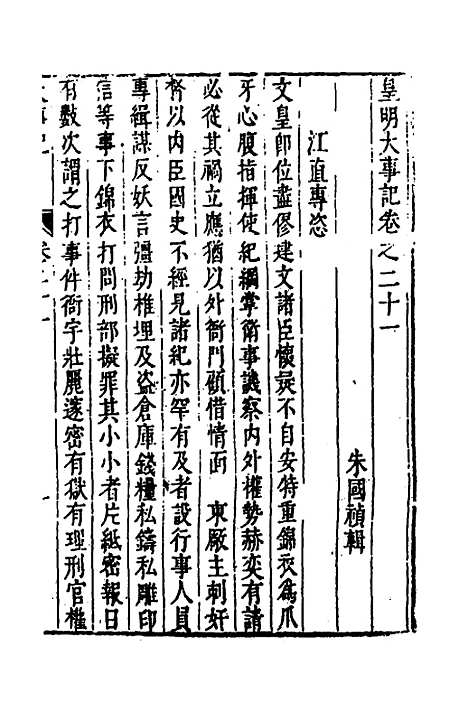 皇明大事記卷之二十一
朱國禎輯
江直專恣
文皇即位盡僇建文諸臣懷疑不自安特重錦衣爲爪
牙心腹指揮使紀綱掌衛事譏察内外權勢赫奕有請
必從其禍立應猶以外衙門顧借情面 東厰主刺奸
督以内臣國史不經見諸紀亦罕有及者設行事人員
專緝謀反妖言彊劫椎埋及盗倉庫錢糧私鑄私雕印
信等事下錦衣打問刑部擬罪其小小者片紙密報日
有數次謂之打事件衙宇壯麗邃密有獄有理刑官權